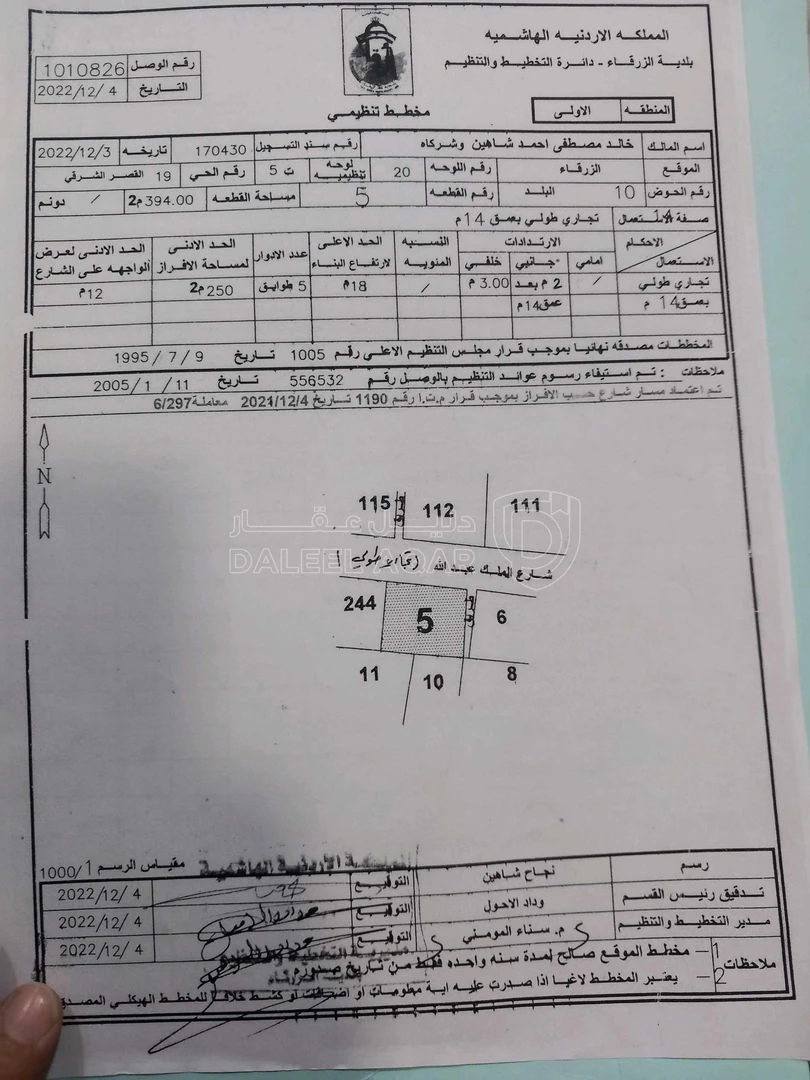 المملكه الاردنيه الهاشميه
بلدية الزرقاء - دائرة التخطيط والتنظيم
رقم الوصل 1010826
التاريخ 2022/12/4
مخطط تنظيمي
المنطقه الاولى
اسم المالك خالد مصطفى احمد شاهين وشركاه رقم سند التسجيل 170430 تاريخه 2022/12/3
الموقع الزرقاء رقم اللوحه 20 لوحة تنظيميه ت 5 رقم الحي 19 القصر الشرقي
رقم الحوض 10 البلد رقم القطعه 5 مساحة القطعه 394.00 م2 / دونم
صفة الاستعمال تجاري طولي بعمق 14 م
الاحكام الارتدادات النسبه المئويه الحد الاعلى لارتفاع البناء عدد الادوار الحد الادنى لمساحة الافراز الحد الادنى لعرض الواجهه على الشارع
الاستعمال امامي جانبي خلفي
تجاري طولي / 2 م بعد 3.00 م / 18م 5 طوابق 250 م2 12م
بعمق 14 م عمق 14م
المخططات مصدقه نهائيا بموجب قرار مجلس التنظيم الاعلى رقم 1005 تاريخ 1995 / 7 / 9
ملاحظات : تم استيفاء رسوم عوائد التنظيم بالوصل رقم 556532 تاريخ 2005 / 1 / 11
تم اعتماد مسار شارع حسب الافراز بموجب قرار م.ت.ا رقم 1190 تاريخ 2021/12/4 معاملة 6/297
N
115 112 111
دليل عقار
DALEEL AQAR
شارع الملك عبد الله
244 5 6
11 10 8
المملكة الاردنية الهاشمية
مقياس الرسم 1000/1
رسم نجاح شاهين التوقيع 2022/12/ 4
تدقيق رئيس القسم وداد الاحول التوقيع 2022/12/ 4
مدير التخطيط والتنظيم م. سناء المومني التوقيع 2022/12/ 4
ملاحظات
1 - مخطط الموقع صالح لمدة سنه واحده فقط من تاريخ صدوره
2 - يعتبر المخطط لاغيا اذا صدرت عليه اية معلومات او اضافات او كشط خلافا للمخطط الهيكلي المصدق